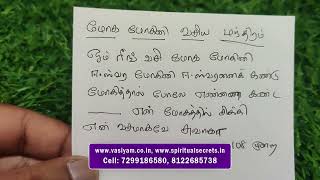 மோக மோகினி வசிய மந்திரம்
ஓம் ரீங் வசி மோக மோகினி
ஈஸ்வர மோகினி ஈஸ்வரனைக் கண்டு
மோகித்தால் போலே என்னை கண்ட
என் மோகத்தில் சிக்கி
என் வசமாகவே சுவாகா
108 முறை
www.vasiyam.co.in, www.spiritualsecrets.in
Cell: 7299186580, 8122685738